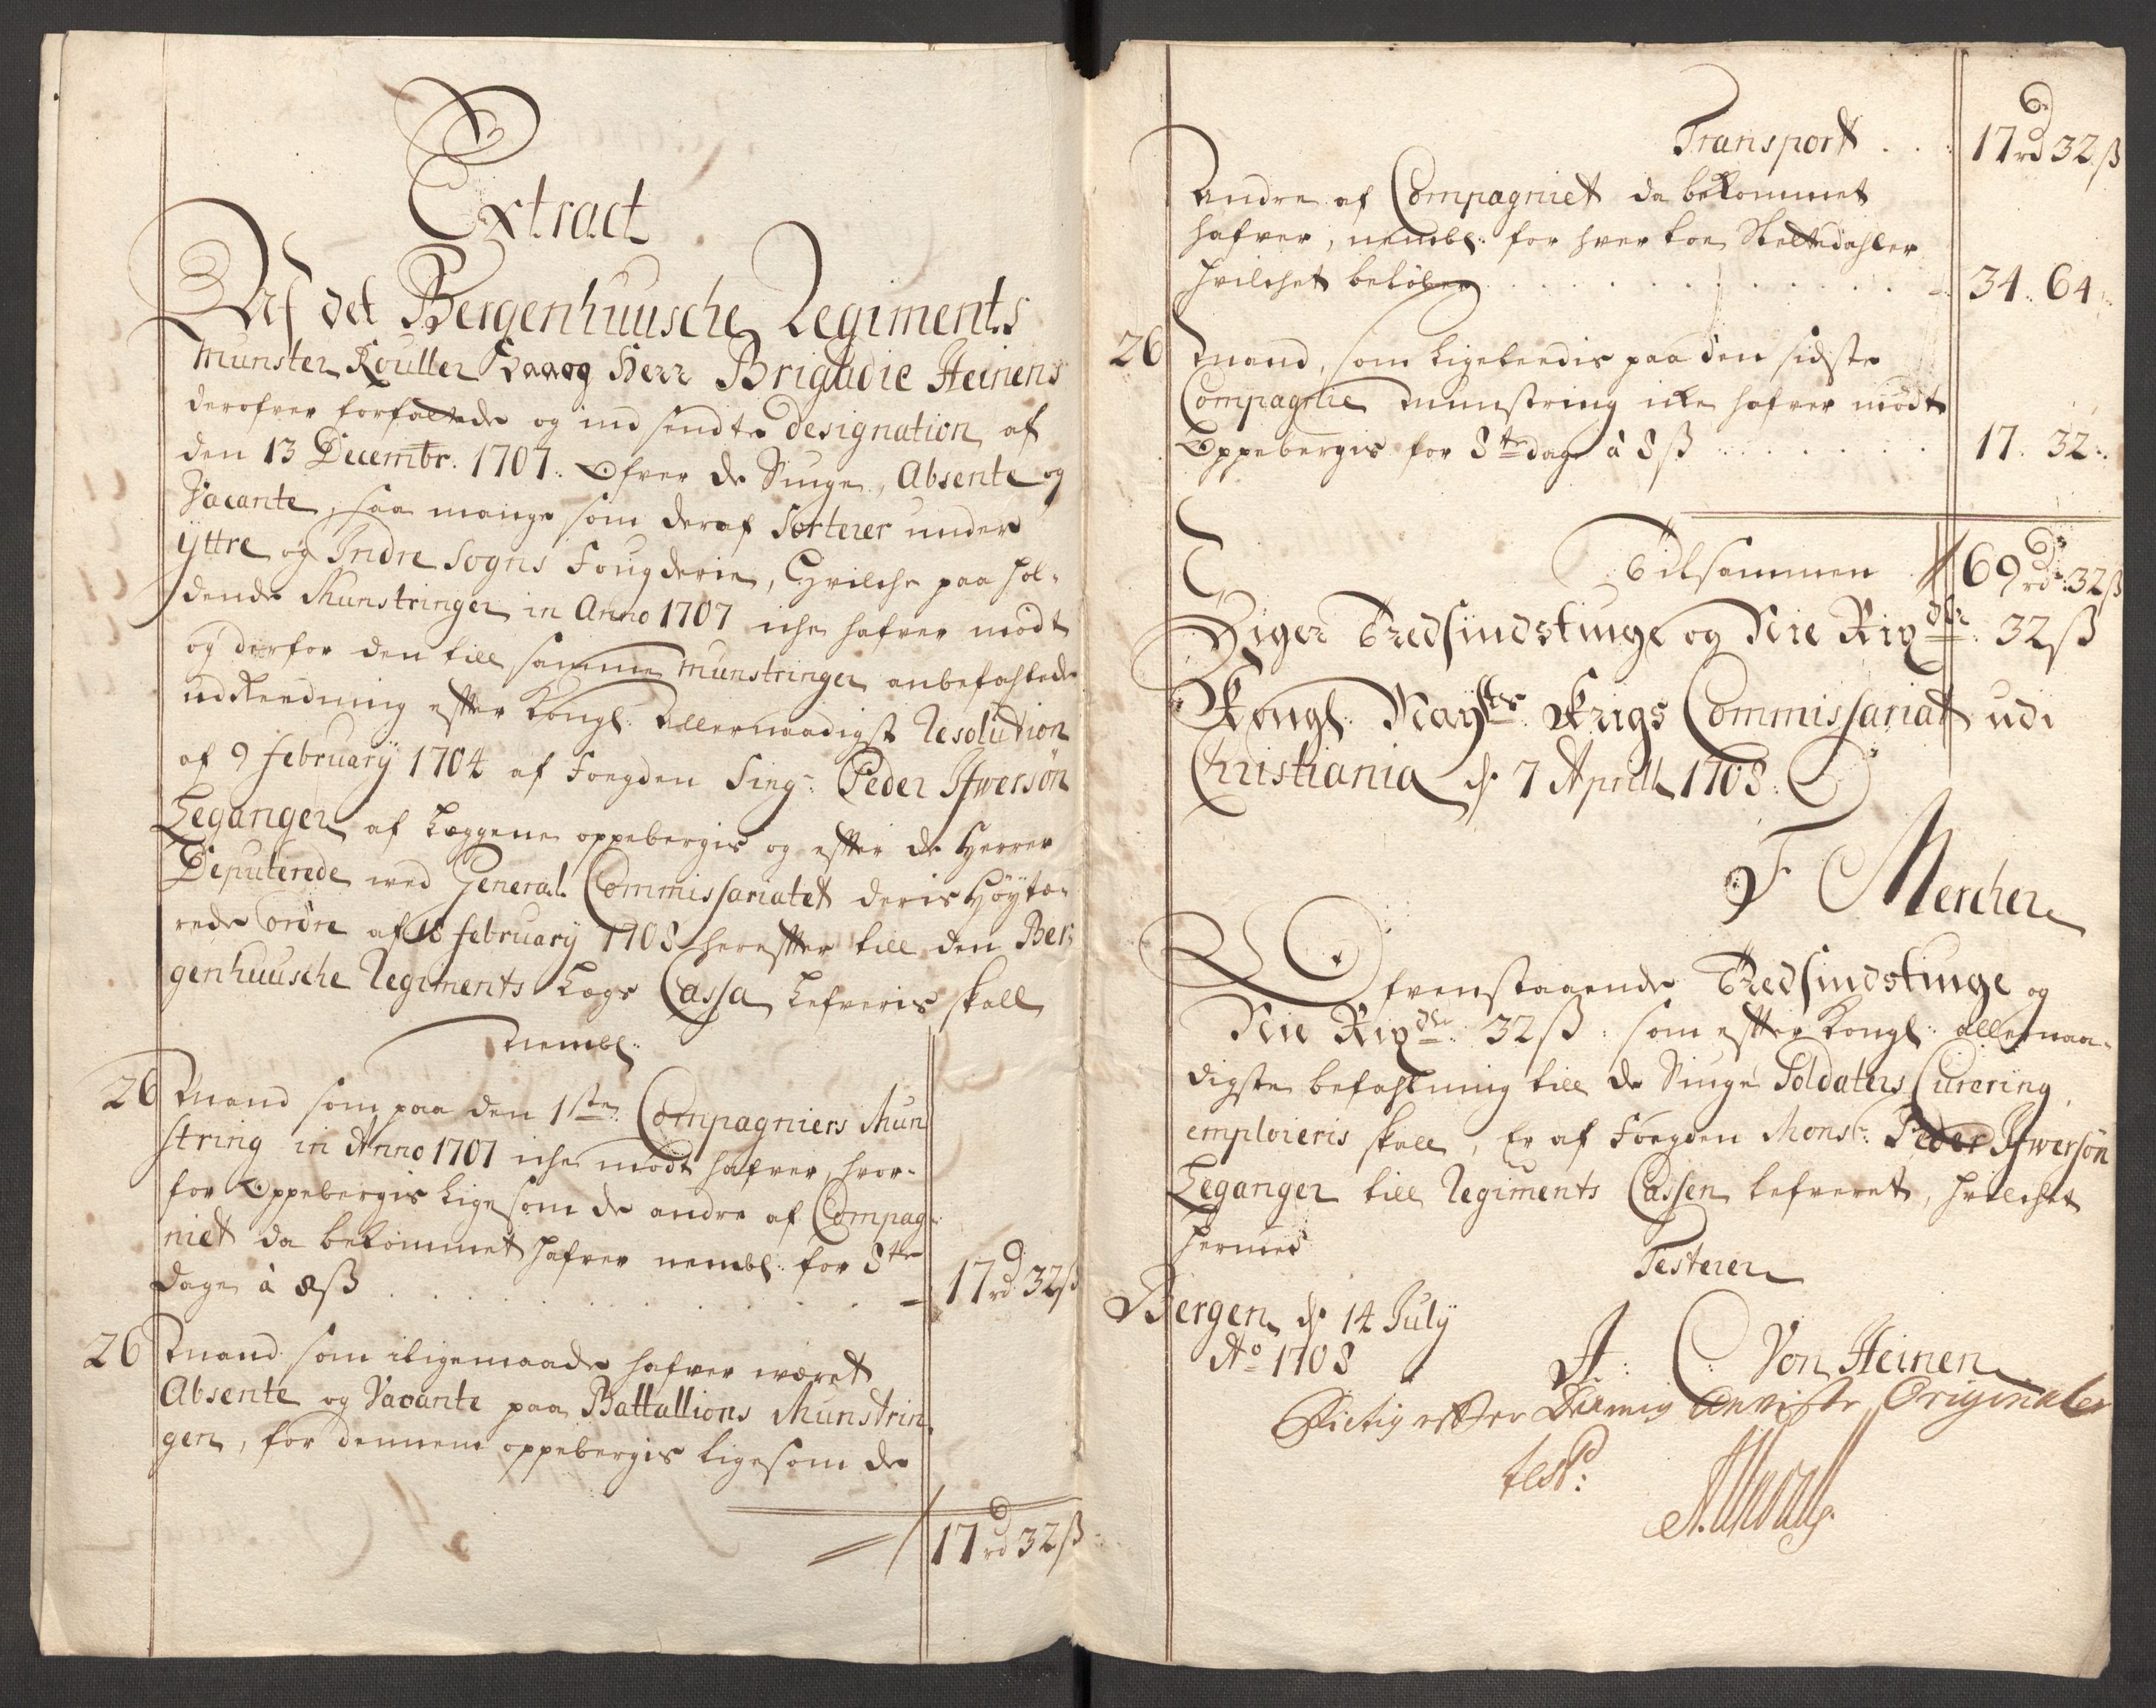 Extract
Af det Bergenhuusche Regiments
Munster Rouller saa og Herr Brigadie Heinens
derofver forfattede og indsendte designation af
den 13 Decembr. 1707. Ofver de Siuge, Absente og
Vacante, saa mange som deraf Sorterer under
Yttre og Indre Sogns Fougderie, Hvilche paa hol-
dende Munstringer in Anno 1707 iche hafver mødt
og derfor den till samme Munstringer anbefahlede
udReedning efter Kongl: Allernaadigste Resolution
af 9 February 1704 af Foegden Sing:r Peder Ifwersøn
Leganger af Læggene oppebergis og efter de Herrer
Deputerede wed General Commissariatet deris Høyto-
rede Ordre af 18 February 1708 herefter till den Ber-
genhuusche Regiments Lægs Cassa Lefveris skall
Nembl:
26 Mand som paa den 1ste Compagniers Mun
string in Anno 1707 iche mødt hafver, hvor-
for Oppebergis Lige som de andre af Compag-
niet da bekommet hafver nembl: for 8te
dage à 8 ß . . . . . . . 17 rd 32 ß
26 Mand som iligemaade hafver wæret
Absente og Vacante paa Battallions Munstrin
gen, for dennem oppebergis ligesom de
17 rd 32 ß
Transport . . 17 rd 32 ß
Andre af Compagniet da bekommet
hafver, nembl: for hver toe Slettedahler
hvilchet beløber . . . . . . . 34 .. 64 ..
26 Mand, som ligeleedis paa den sidste
Compagnie Munstring iche hafver mødt
Oppebergis for 8te dage à 8 ß . . . . . 17 . 32 ..
Tilsammen 69 rdr 32 ß
Siger Tredsindstinge og Nie Rixdlr 32 ß
Kongl: Mayts Krigs Commissariat udi
Christiania d. 7 Aprill 1708.
F Mercher
Ofvenstaaende Tredsindstinge og
Nie Rixdlr 32 ß: som efter Kongl: allernaa-
digste befahlning till de Siuge Soldaters Curering
emploieris skall, Er af Foegden Monsr: Peder Ifwersøn
Leganger till Regiments Cassen lefveret, hvilchet
hermed
Testerer
Bergen d. 14 July
Ao 1708
A: C: Von Heinen
Rictig efter Dennig anviste Originaler
test: